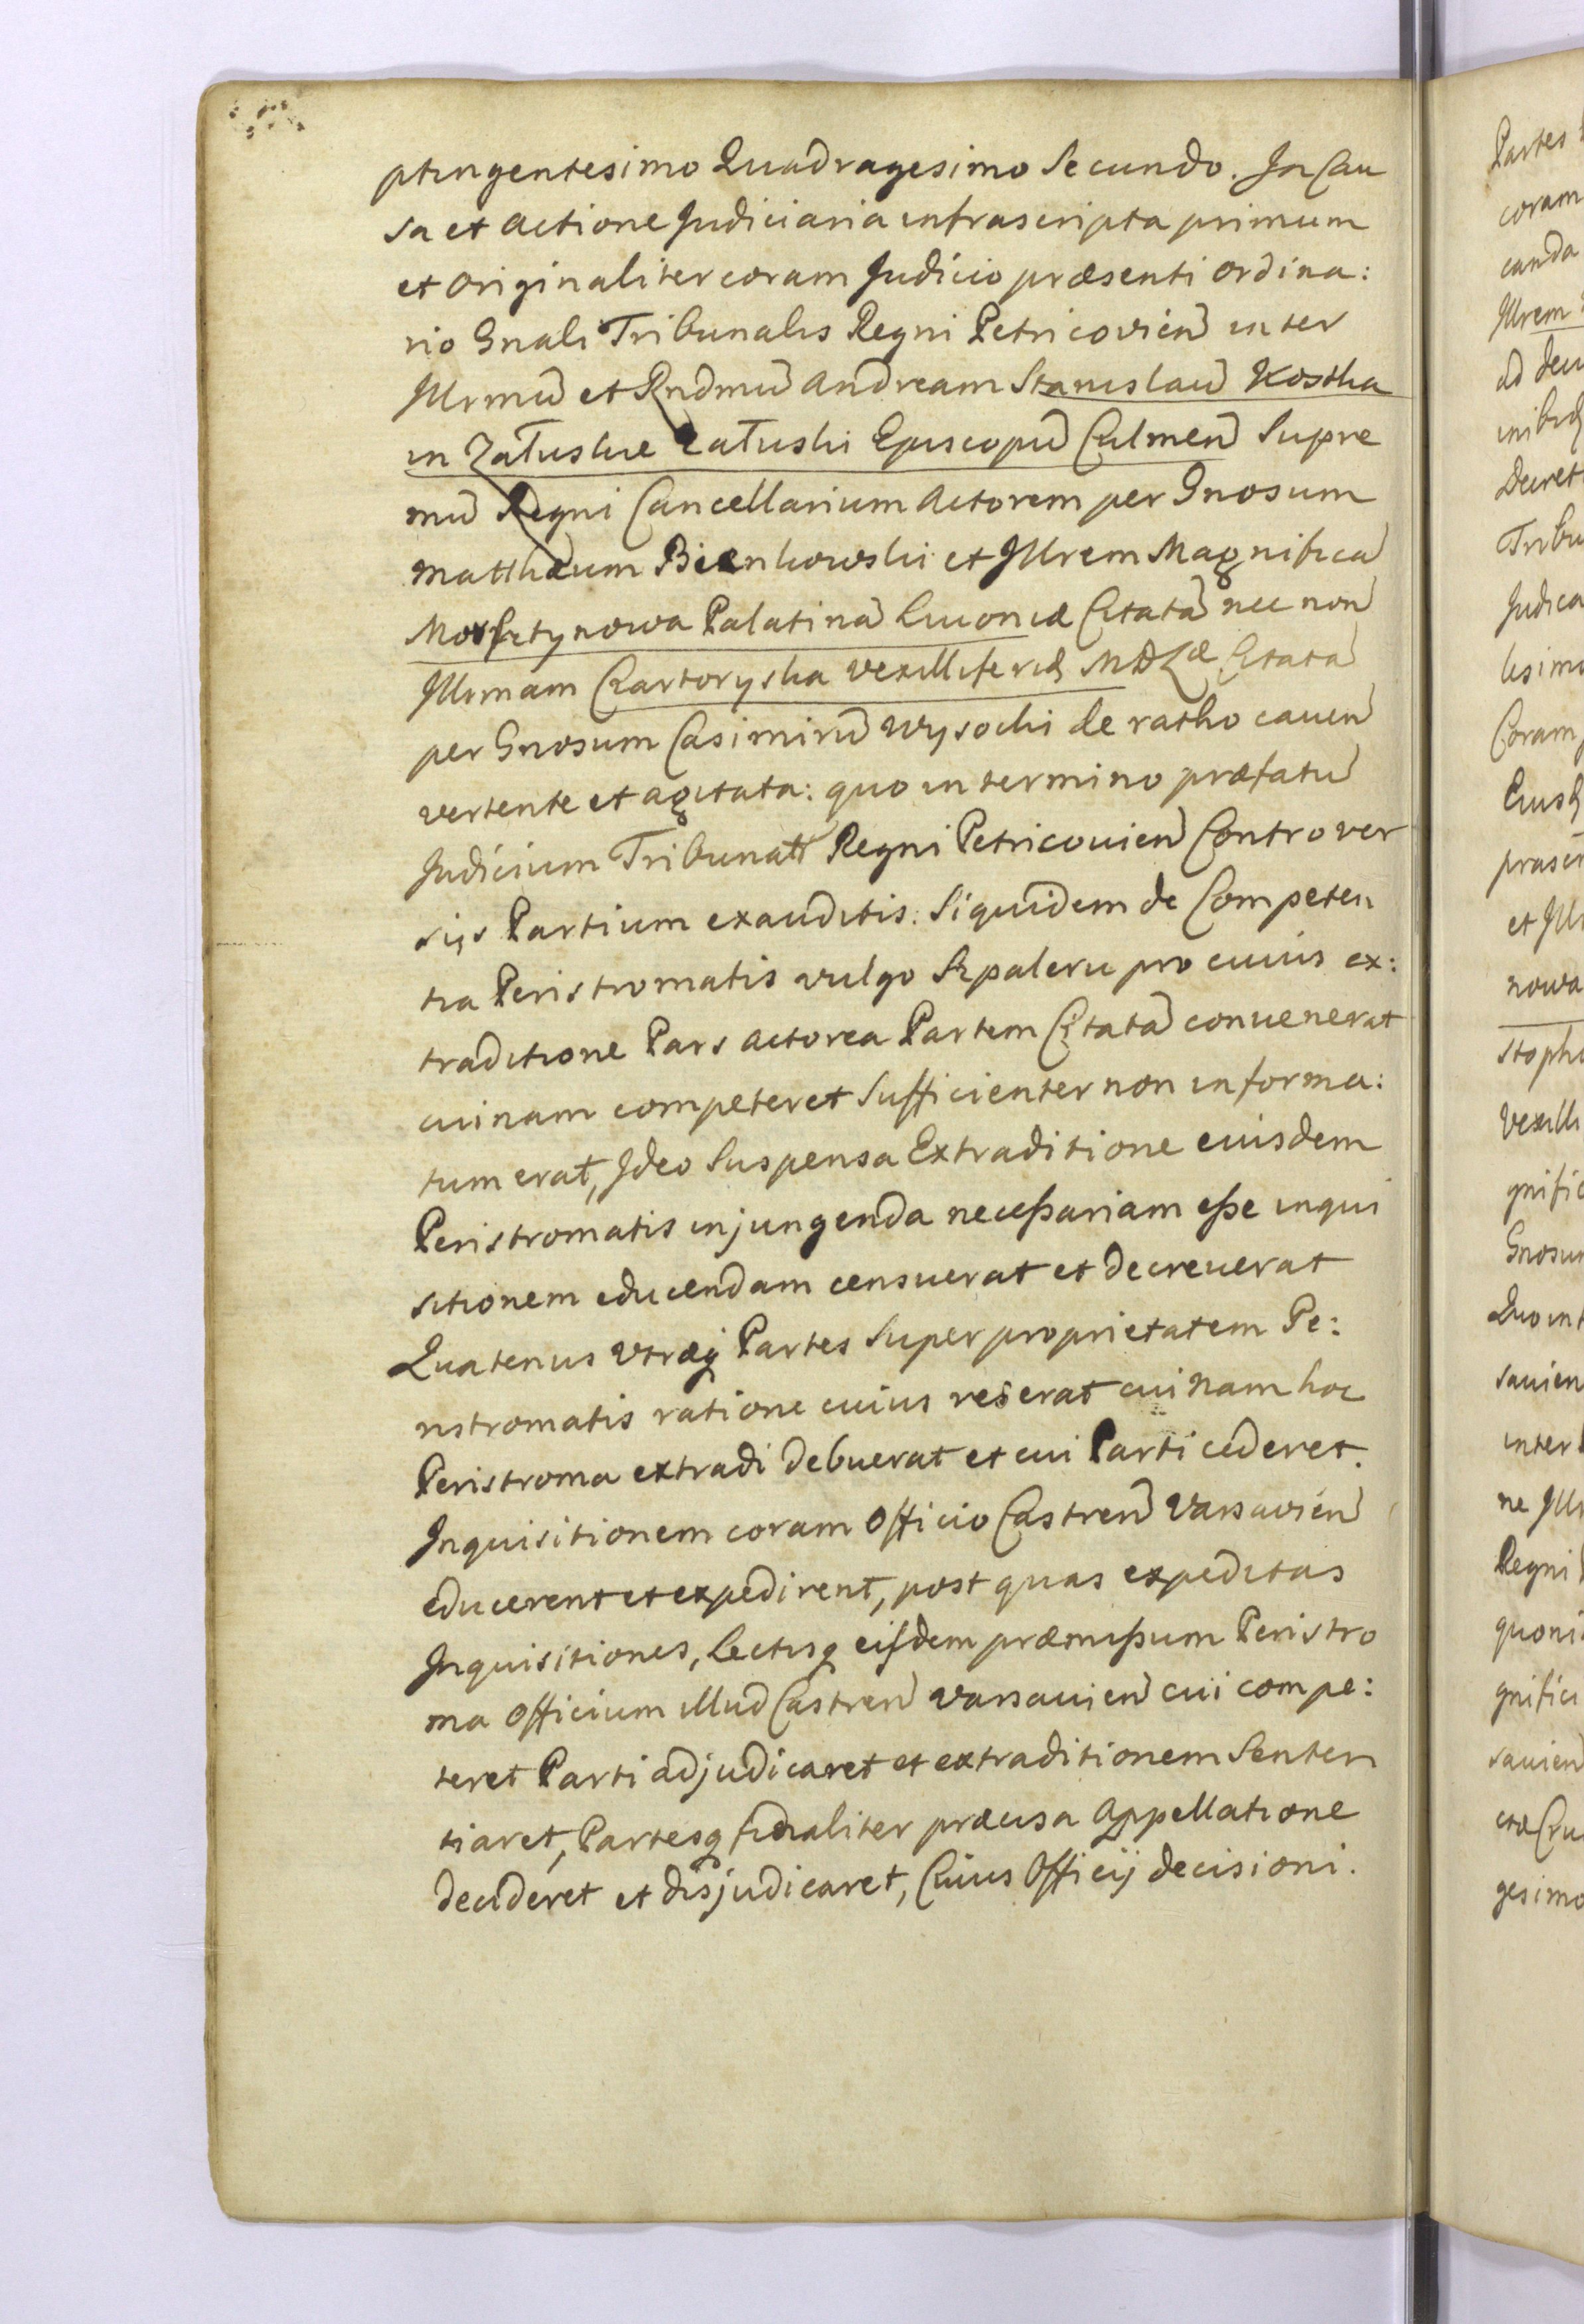 ptingentesimo Quadragesimo Secundo. In Cau
sa et actione Judiciaria infrascripta primum
et originaliter coram Judicio præsenti ordina:
rio Gnali Tribunalis Regni Petricovien inter
Illrmu et Rndmu Andream Stanislau Kostka
in Załuskie Załuski Episcopu Culmen Supre
mu Regni Cancellarium Actorem per Gnosum
Matthæum Bienkowski et Illrem Magnifica
Morsztynowa Palatina Liuoniæ Citata nec non
Illrmam Czartoryska Vexilliferiq MDLæ Citata
per Gnosum Casimiru Wysocki de ratho cauen
vertente et agitata: quo in termino præfatu
Judicium Tribunatt Regni Petricouien Controver
sijs Partium exauditis. Siquidem de Competen
tia Peristromatis vulgo Szpaleru pro cuius ex:
traditione Pars Actorea Partem Citata conuenerat
cuinam competeret Sufficienter non informa:
tum erat, Ideo Suspensa Extraditione eiusdem
Peristromatis injungenda neceßariam eße inqui
sitionem educendam censuerat et decreuerat
Quatenus Vtræq Partes Super proprietatem Pe:
ristromatis ratione cuius res erat cuinam hoc
Peristroma extradi debuerat et cui Parti cederet.
Inquisitionem coram Officio Castren Varsavien
educerent et expedirent, post quas expeditas
Inquisitiones, Lectisq eisdem præmißum Peristro
ma Officium illud Castren Varsauien cui compe:
teret Parti adjudicaret et extraditionem Senten
tiaret, Partesq finaliter præcisa Appellatione
decideret et disjudicaret, Cuius Officij decisioni.
Partes
coram
canda
Illrem
ad deci
Decret
Tribu
Judica
lesimo
Coram
præsen
et Illr
nowa
stoph
Vexilli
gnific
Gnosum
Quo int
sauien
inter
ne Illr
Regni
quoni
gnifici
sauien
gesimo